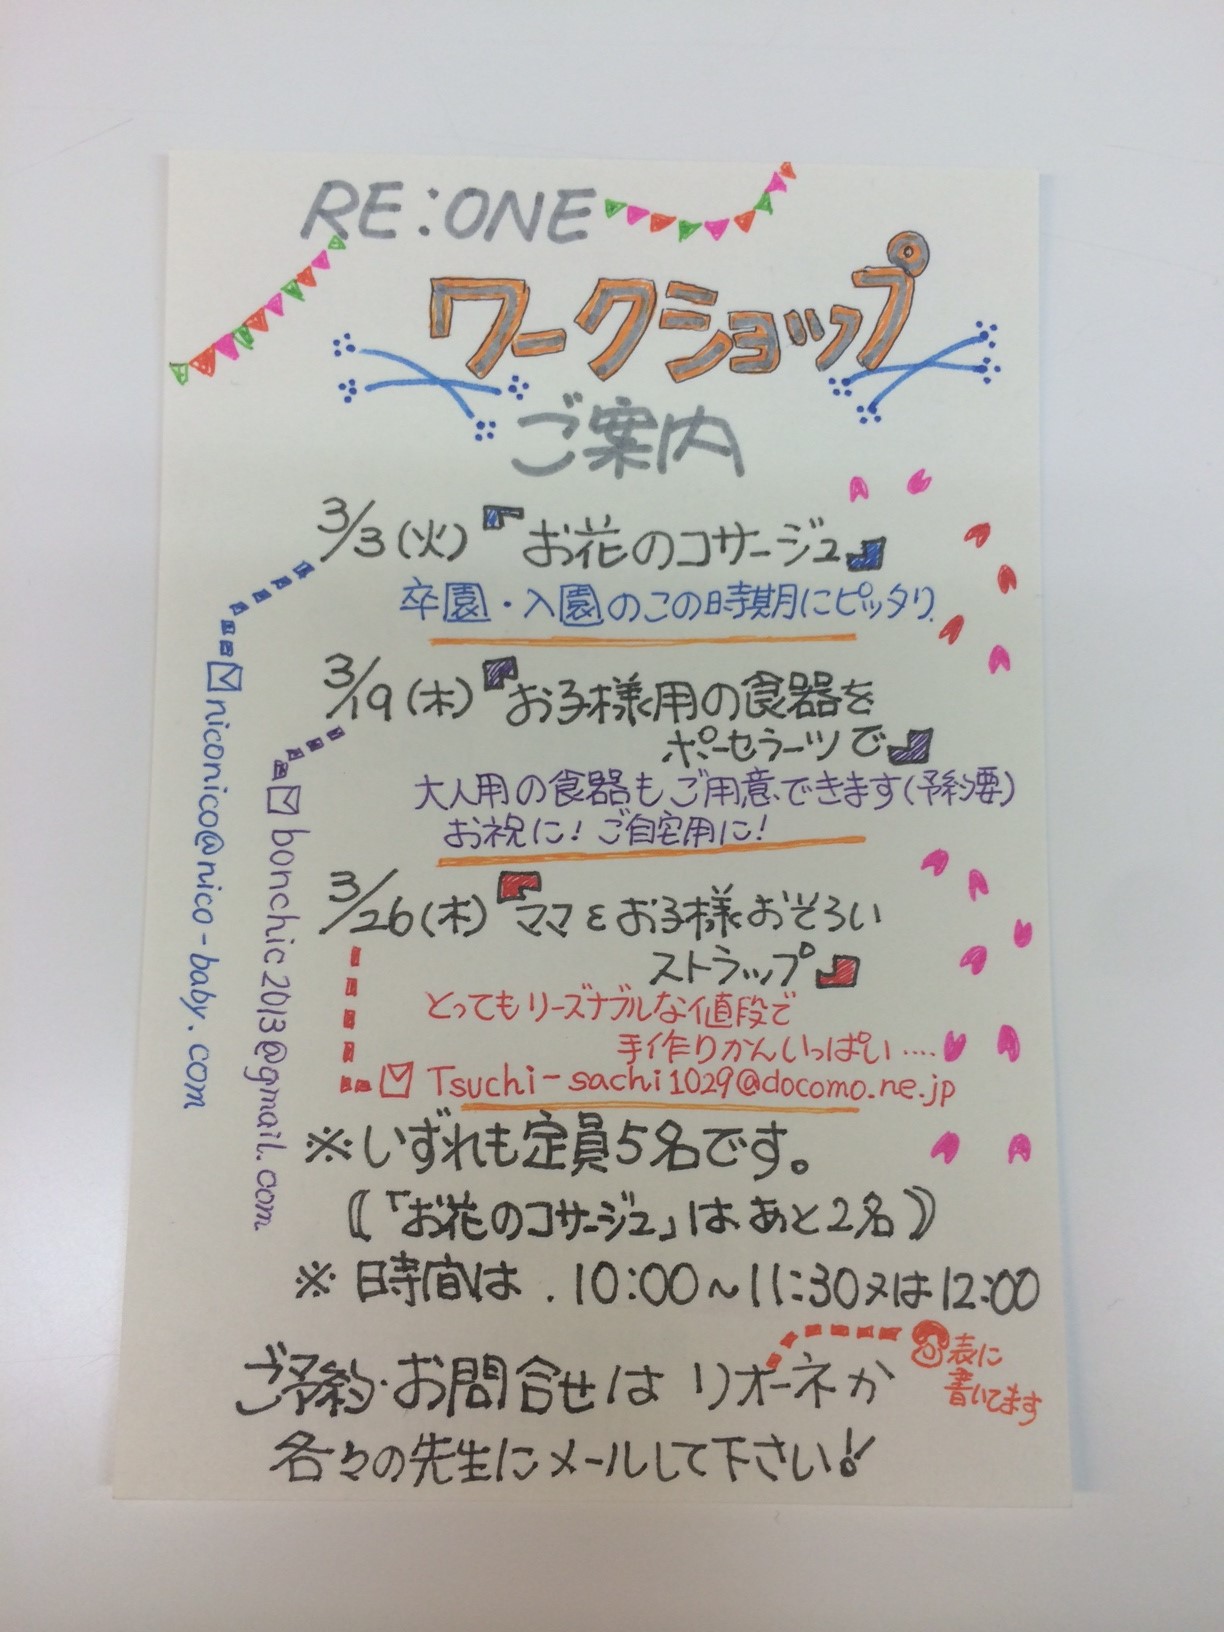 RE:ONE
ワークショップ
ご案内
3/3(火)『お花のコサージュ』
卒園・入園のこの時期にピッタリ
niconico@nico-baby.com
3/19(木)『お子様用の食器を
ポーセラーツで』
大人用の食器もご用意できます(予約要)
お祝に!ご自宅用に!
bonchic2013@gmail.com
3/26(木)『ママとお子様おそろい
ストラップ』
とってもリーズナブルな値段で
手作りかんいっぱい....
Tsuchi-sachi1029@docomo.ne.jp
※いずれも定員5名です。
(「お花のコサージュ」はあと2名)
※時間は.10:00~11:30又は12:00
ご予約・お問合せはリオーネか
表に
書いてます
各々の先生にメールして下さい!